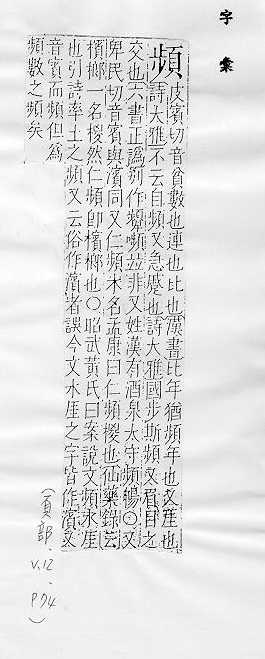 字彙
頻 皮賓切音貧數也連也比也漢書比年猶頻年也又涯也
詩大雅不云自頻又急蹙也詩大雅國步斯頻又眉目之
交也六書正譌別作顰嚬並非又姓漢有酒泉太守頻暢○又
卑民切音賓與濱同又仁頻木名孟康曰仁頻椶也仙藥錄云
檳榔一名椶然仁頻卽檳榔也○昭武黃氏曰案說文頻水厓
也引詩率土之頻又云俗作濱者誤今文水厓之字皆作濱又
音賓而頻但爲
頻數之頻矣
(頁部.
V.12.
P74
)